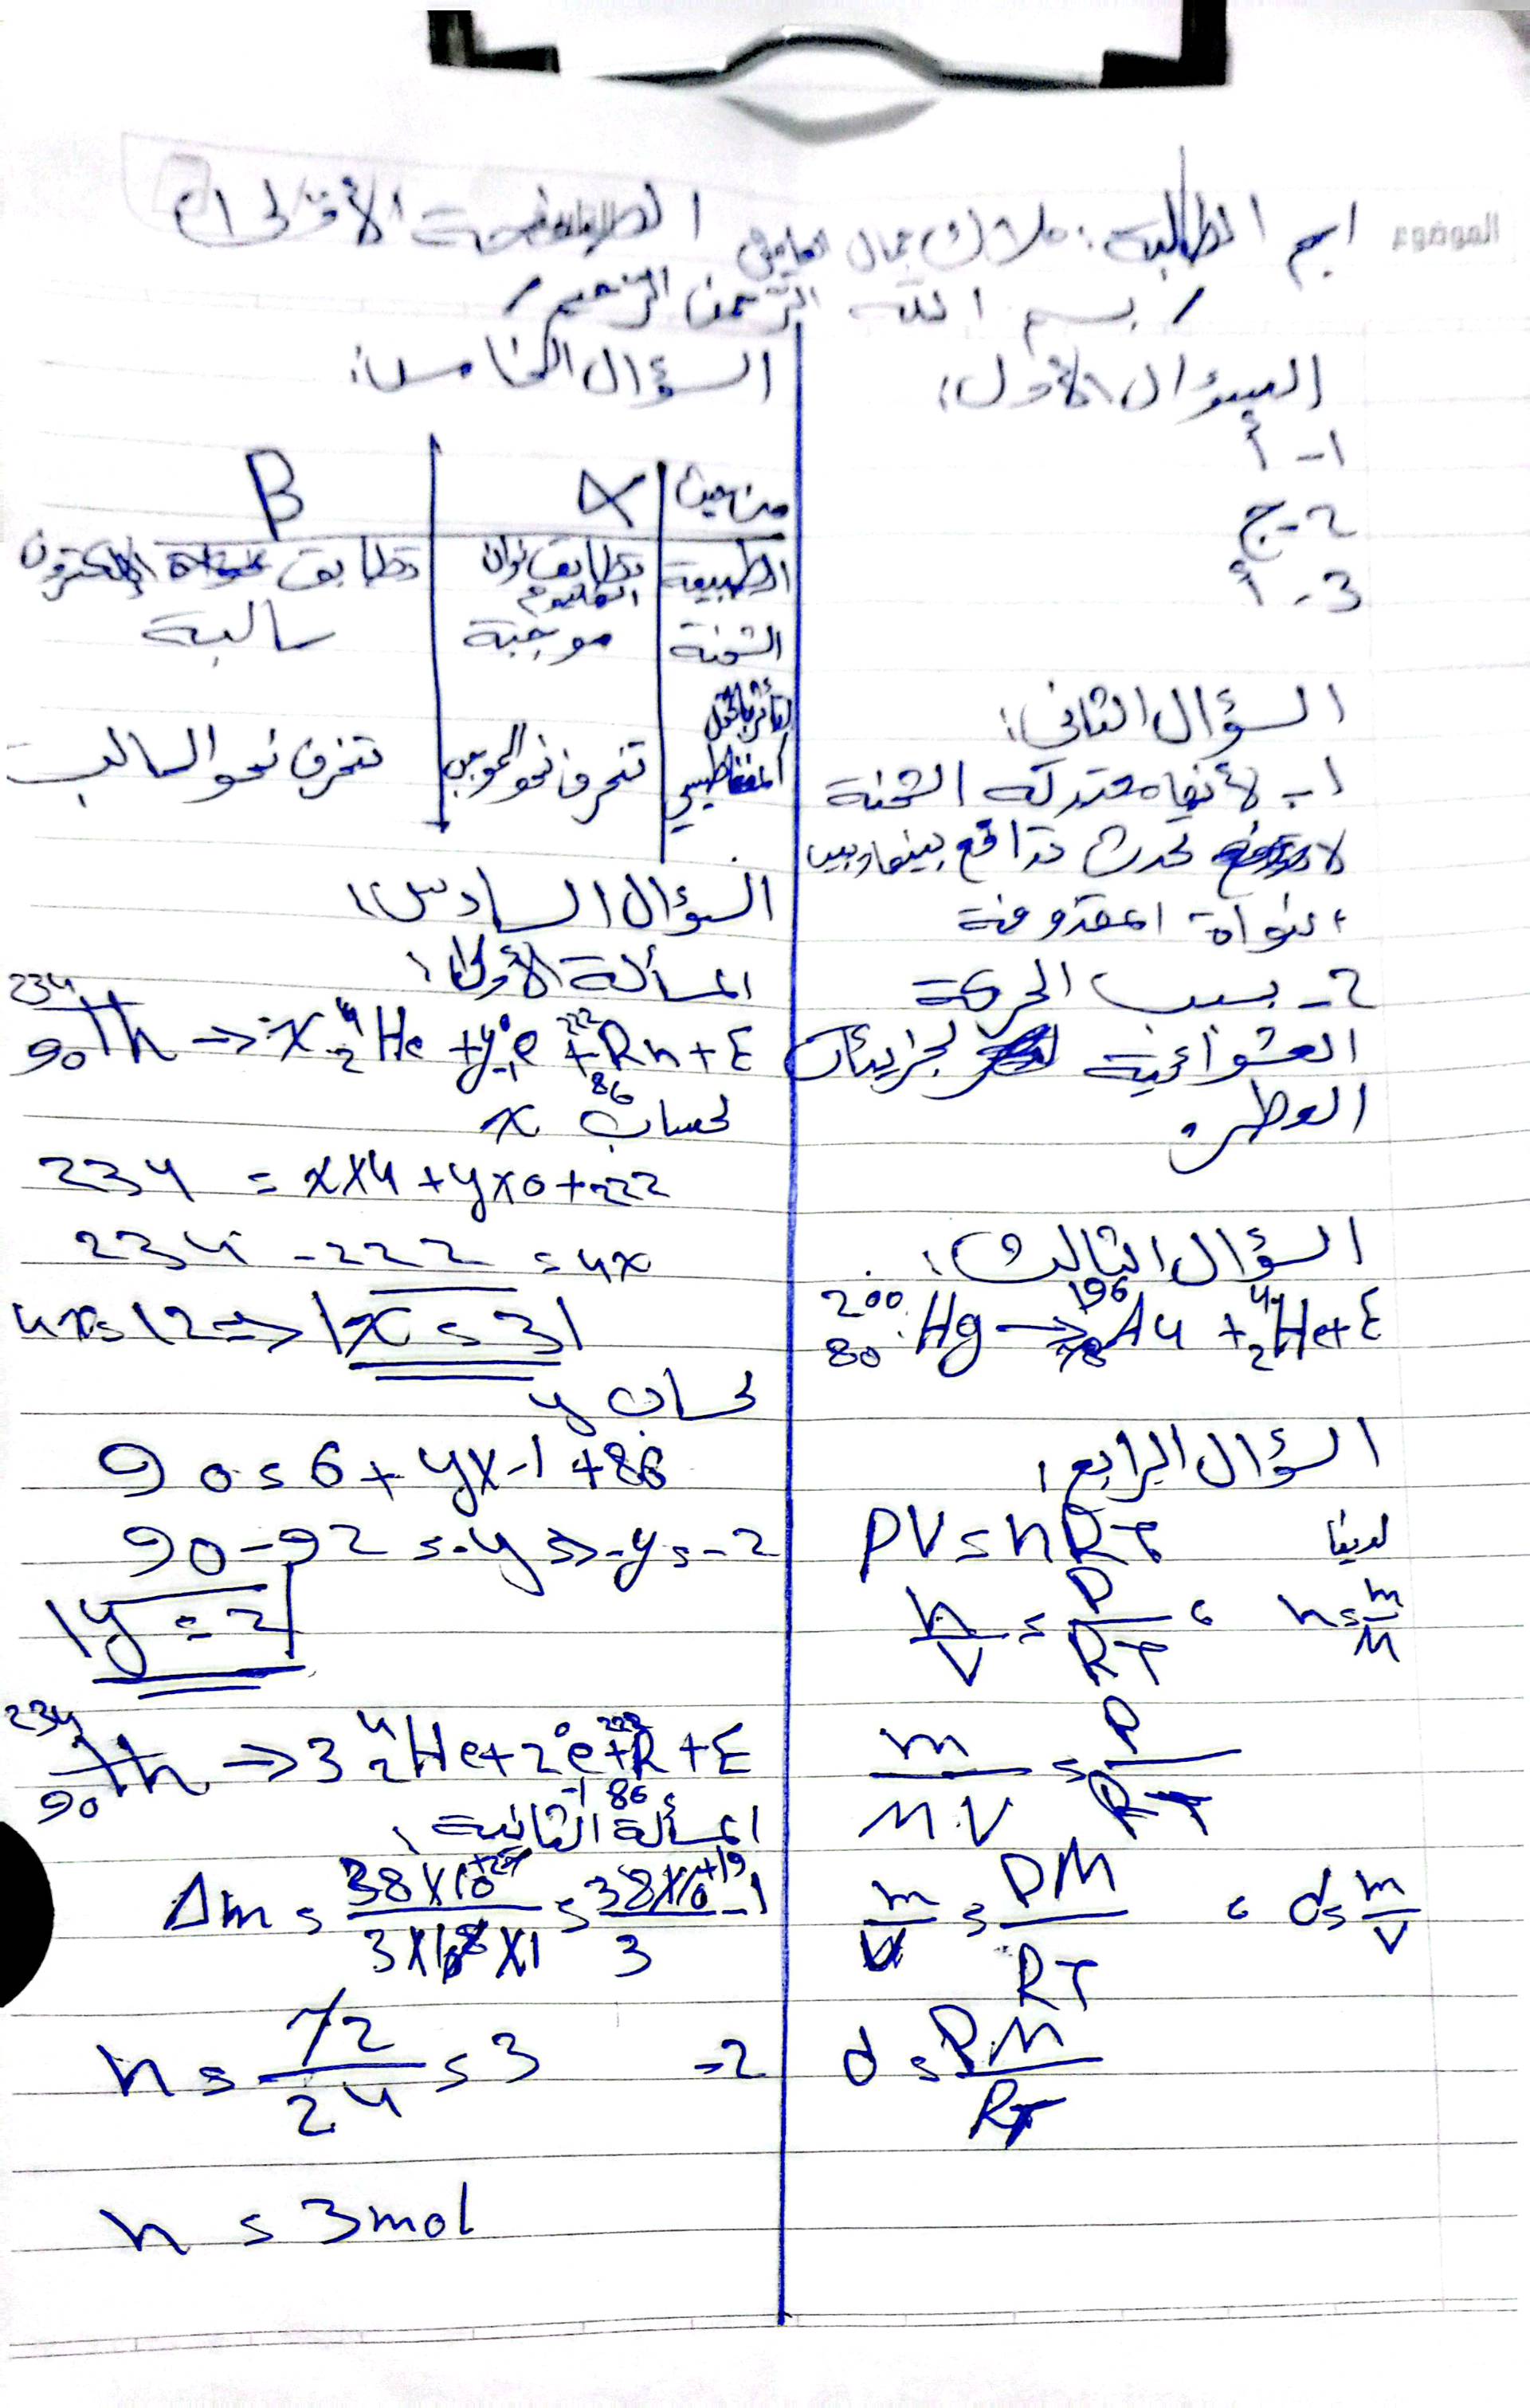 الموضوع
اسم الطالبة: ملاك جمال الصفحة الأولى
/ بسم الله الرحمن الرحيم /
السؤال الأول:
1- أ
2- ج
3- أ
السؤال الثاني:
1- لأنها معتدلة الشحنة
لا يحدث تدافع بينها وبين
النواة المقذوفة
2- بسبب الحركة
العشوائية لجزيئات
العطر.
السؤال الثالث:
²⁰⁰₈₀Hg → ¹⁹⁶₇₈Au + ⁴₂He + E
السؤال الرابع:
لدينا PV = nRT
n/V = P/RT ، n = m/M
m/MV = P/RT
m/V = PM/RT ، d = m/V
d = PM/RT
السؤال الخامس:
من حيث α β
الطبيعة تطابق نواة الهليوم تطابق الإلكترون
الشحنة موجبة سالبة
التأثر بالحقل المغناطيسي تنحرف نحو الموجب تنحرف نحو السالب
السؤال السادس:
المسألة الأولى:
²³⁴₉₀Th → x ⁴₂He + y ⁰₋₁e + ²²²₈₆Rn + E
لحساب x
234 = x×4 + y×0 + 222
234 - 222 = 4x
4x = 12 => |x = 3|
لحساب y
90 = 6 + y×-1 + 86
90 - 92 = -y => -y = -2
|y = 2|
²³⁴₉₀Th → 3 ⁴₂He + 2 ⁰₋₁e + ²²²₈₆R + E
المسألة الثانية:
1- Δm = 38×10⁺²⁷/3×10⁸×1 = 38×10⁺¹⁹/3
2- n = 72/24 = 3
n = 3 mol